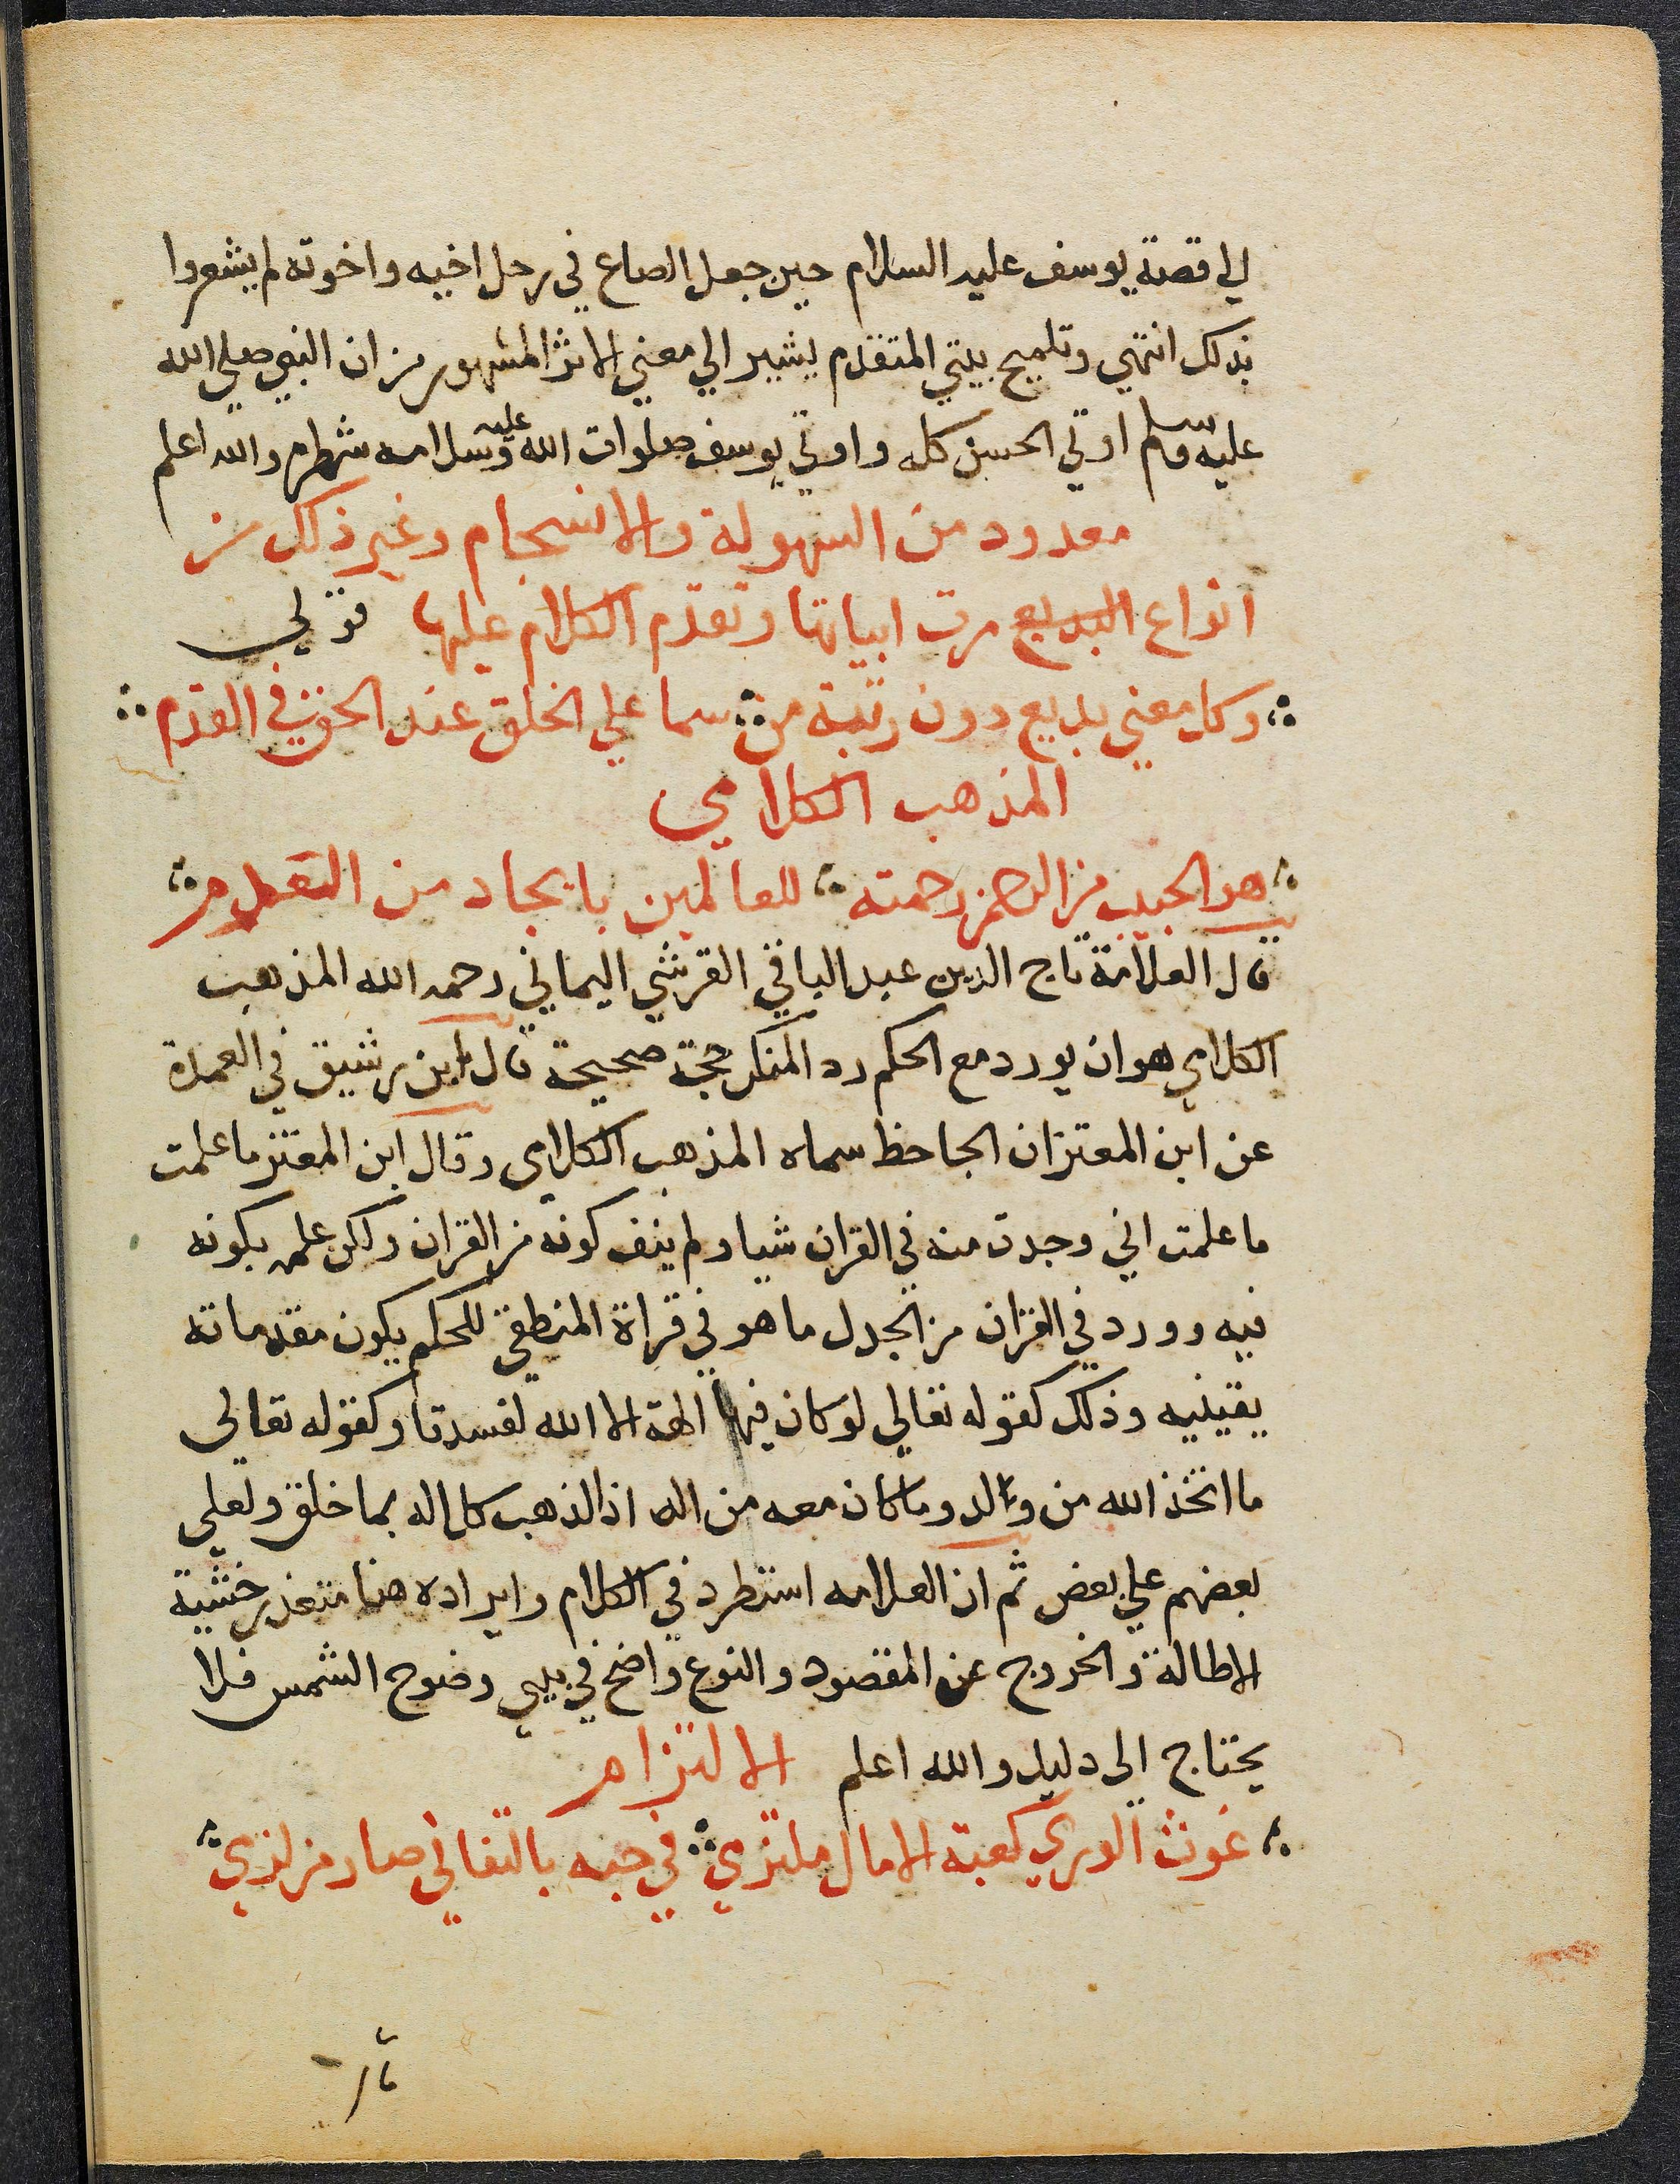 الي قصة يوسف عليه السلام حين جعل الصاع في رحل اخيه واخوته لم يشعروا
بذلك انتهي وتلميح بيتي المتقدم يشير الي معني الاثر المشهور من ان النبي صلي الله
عليه وسلم اوتي الحسن كله واوتي يوسف صلوات الله عليه وسلامه شطره والله اعلم
معدود من السهولة والانسجام وغير ذلك من
انواع البديع مرت ابياتها وتقدم الكلام عليها قولي
وكل معني بديع دون رتبة من سما علي الخلق عند الحق في القدم
المذهب الكلامي
هو الحبيب من الرحمن رحمته للعالمين بايجاد من العدم
قال العلامة تاج الدين عبد الباقي القرشي اليماني رحمه الله المذهب
الكلامي هو ان يورد مع الحكم رد المنكر حجة صحيحة قال ابن رشيق في العمدة
عن ابن المعتز ان الجاحظ سماه المذهب الكلامي وقال ابن المعتز ما علمت
ما علمت اني وجدت منه في القران شيا ولم ينف كونه من القران ولكن علمه بكونه
فيه وورد في القران من الجدل ما هو في قراة المنطقي للحكم يكون مقدماته
يقينيه وذلك كقوله تعالي لو كان فيهما الهة الا الله لفسدتا وكقوله تعالي
ما اتخذ الله من ولد وما كان معه من اله اذا لذهب كل اله بما خلق ولعلي
بعضهم علي بعض ثم ان العلامه استطرد في الكلام وايراده هنا متعذر خشية
الاطالة والخروج عن المقصود والنوع واضح في بيتي وضوح الشمس فلا
يحتاج الي دليل والله اعلم الالتزام
غوث الوري كعبة الامال ملتزمي في حبه بالتفاني صار من لزمي